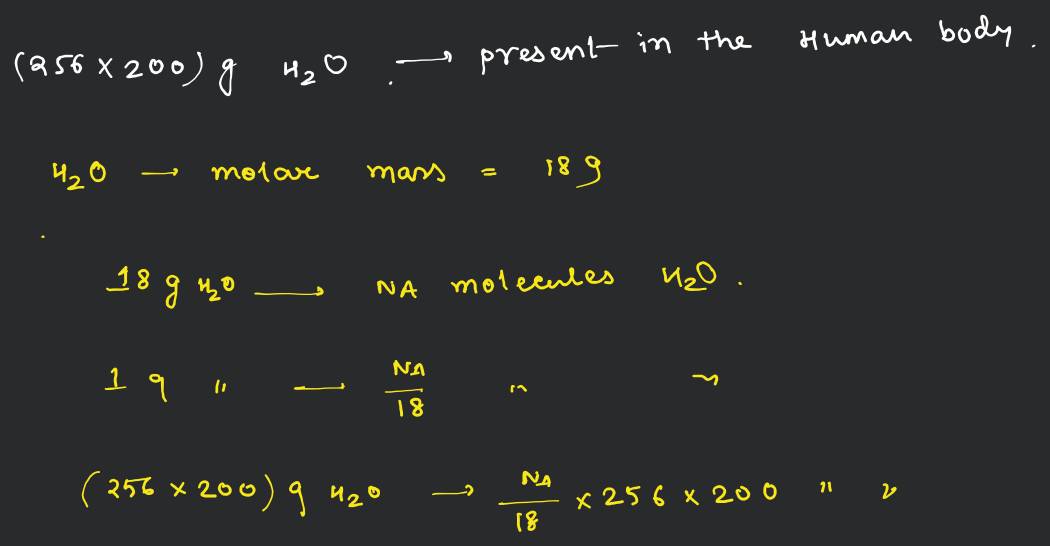 (256 × 200) g H₂O → present in the Human body.
H₂O → molar mass = 18 g
18 g H₂O → NA molecules H₂O.
1 g " — NA/18 " "
(256 × 200) g H₂O → NA/18 × 256 × 200 " "